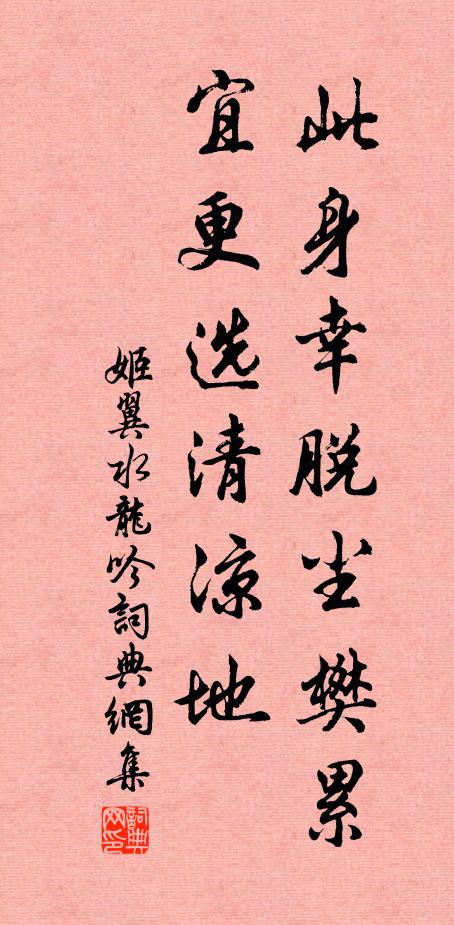 此身幸脱尘樊累
宜更选清凉地
姬翼水龍吟詞典網集
詞典网印